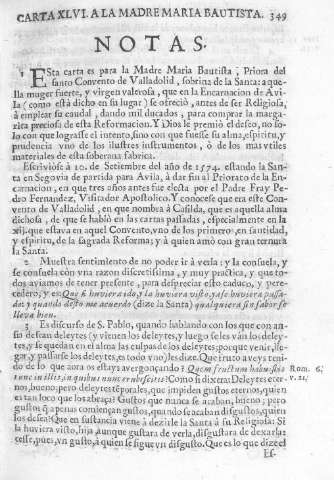 CARTA XLVI. A LA MADRE MARIA BAUTISTA. 349
NOTAS.
1 Esta carta es para la Madre Maria Bautista, Priora del
santo Convento de Valladolid, sobrina de la Santa: aque-
lla muger fuerte, y virgen valerosa, que en la Encarnacion de Avi-
la (como está dicho en su lugar) se ofreciò, antes de ser Religiosa,
à emplear su caudal, dando mil ducados, para comprar la marga-
rita preciosa de esta Reformacion. Y Dios le premiò el deseo, no so-
lo con que lograsse el intento, sino con que fuesse su alma, espiritu, y
prudencia vno de los ilustres instrumentos, ò de los mas vtiles
materiales de esta soberana fabrica.
Escriviòse à 10. de Setiembre del año de 1574. estando la San-
ta en Segovia de partida para Avila, à dar fin al Priorato de la En-
carnacion, en que tres años antes fue electa por el Padre Fray Pe-
dro Fernandez, Visitador Apostolico. Y conocese que era este Con-
vento de Valladolid, en que nombra à Casilda, que es aquella alma
dichosa, de que se hablò en las cartas passadas, especialmente en la
que estava en aquel Convento, vno de los primeros, en santidad,
y espiritu, de la sagrada Reforma; y à quien amò con gran ternura
la Santa.
2 Muestra sentimiento de no poder ir à verla: y la consuela, y
se consuela con vna razon discretissima, y muy practica, y que to-
dos aviamos de tener presente, para despreciar esto caduco, y pere-
cedero, y es: Que si huviera ido, y la huviera visto, ya se huviera passa-
do: y quando desto me acuerdo (dize la Santa) qualquiera sinsabor se
lleva bien.
3 Es discurso de S. Pablo, quando hablando con los que con an-
sia desean deleytes (y vienen los deleytes, y luego se les vàn los deley-
tes, y se quedan en el alma las culpas de los deleytes; porque venir, lle-
gar, y passarse los deleytes, es todo vno) les dize: Que fruto aveys teni-
do de lo que aora os estays avergonçando? Quem fructum habuistis
tunc in illis, in quibus nunc erubescitis? Como si dixera: Deleytes eter-
nos, bueno; pero deleytes teporales, que impiden gustos eternos, quien
es tan loco que los abraça? Gustos que nunca se acaban, bueno; pero
gustos q̃ apenas comiençan gustos, quando se acaban disgustos, quien
los desea? Que en sustancia viene à dezirle la Santa à su Religiosa: Si
la huviera visto, hija, aunque gustara de verla, disgustara de dexarla:
cesse, pues, vn gusto, à quien se sigue vn disgusto. Que es lo que dize el
Rom. 6.
v. 21.
Es-